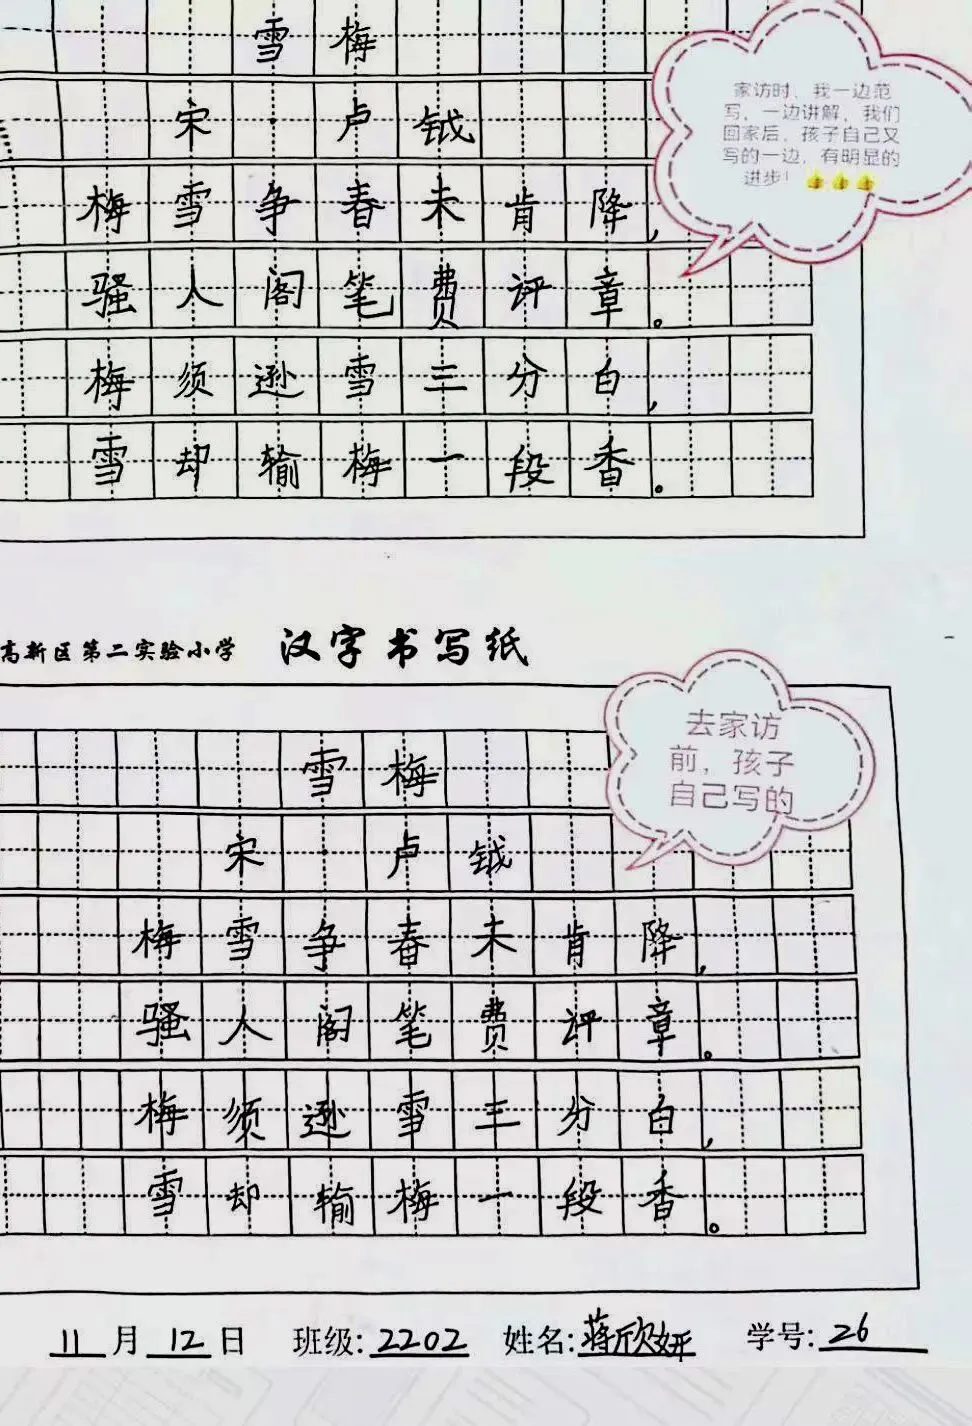 雪梅
宋·卢钺
梅雪争春未肯降,
骚人阁笔费评章。
梅须逊雪三分白,
雪却输梅一段香。
家访时、我一边范
写，一边讲解，我们
回家后，孩子自己又
写的一边，有明显的
进步！👍👍👍
高新区第二实验小学 汉字书写纸
雪梅
宋·卢钺
梅雪争春未肯降,
骚人阁笔费评章。
梅须逊雪三分白,
雪却输梅一段香。
去家访
前，孩子
自己写的
11月12日 班级:2202 姓名:蒋欣妍 学号:26